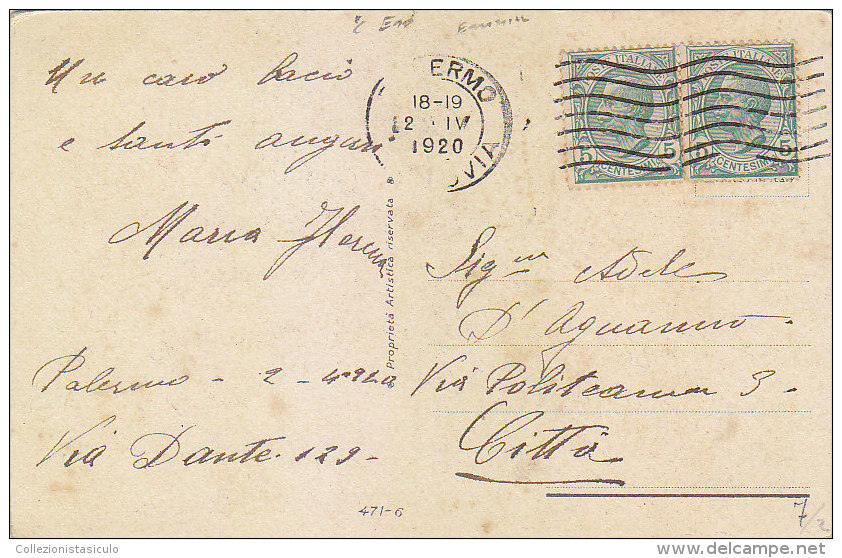 Un caro bacio
e tanti auguri
Maria
Palermo - 2 - 4 920
Via Dante 129 -
471-6
Proprietà Artistica riservata
ERMO
18-19
12 IV
1920
POSTE ITALIANE
5 CENTESIMI 5
POSTE ITALIANE
5 CENTESIMI 5
Sig.na Adele
D'Aguanno
Via Politeama 3 -
Città
7/2
Collezionistasiculo
www.delcampe.net